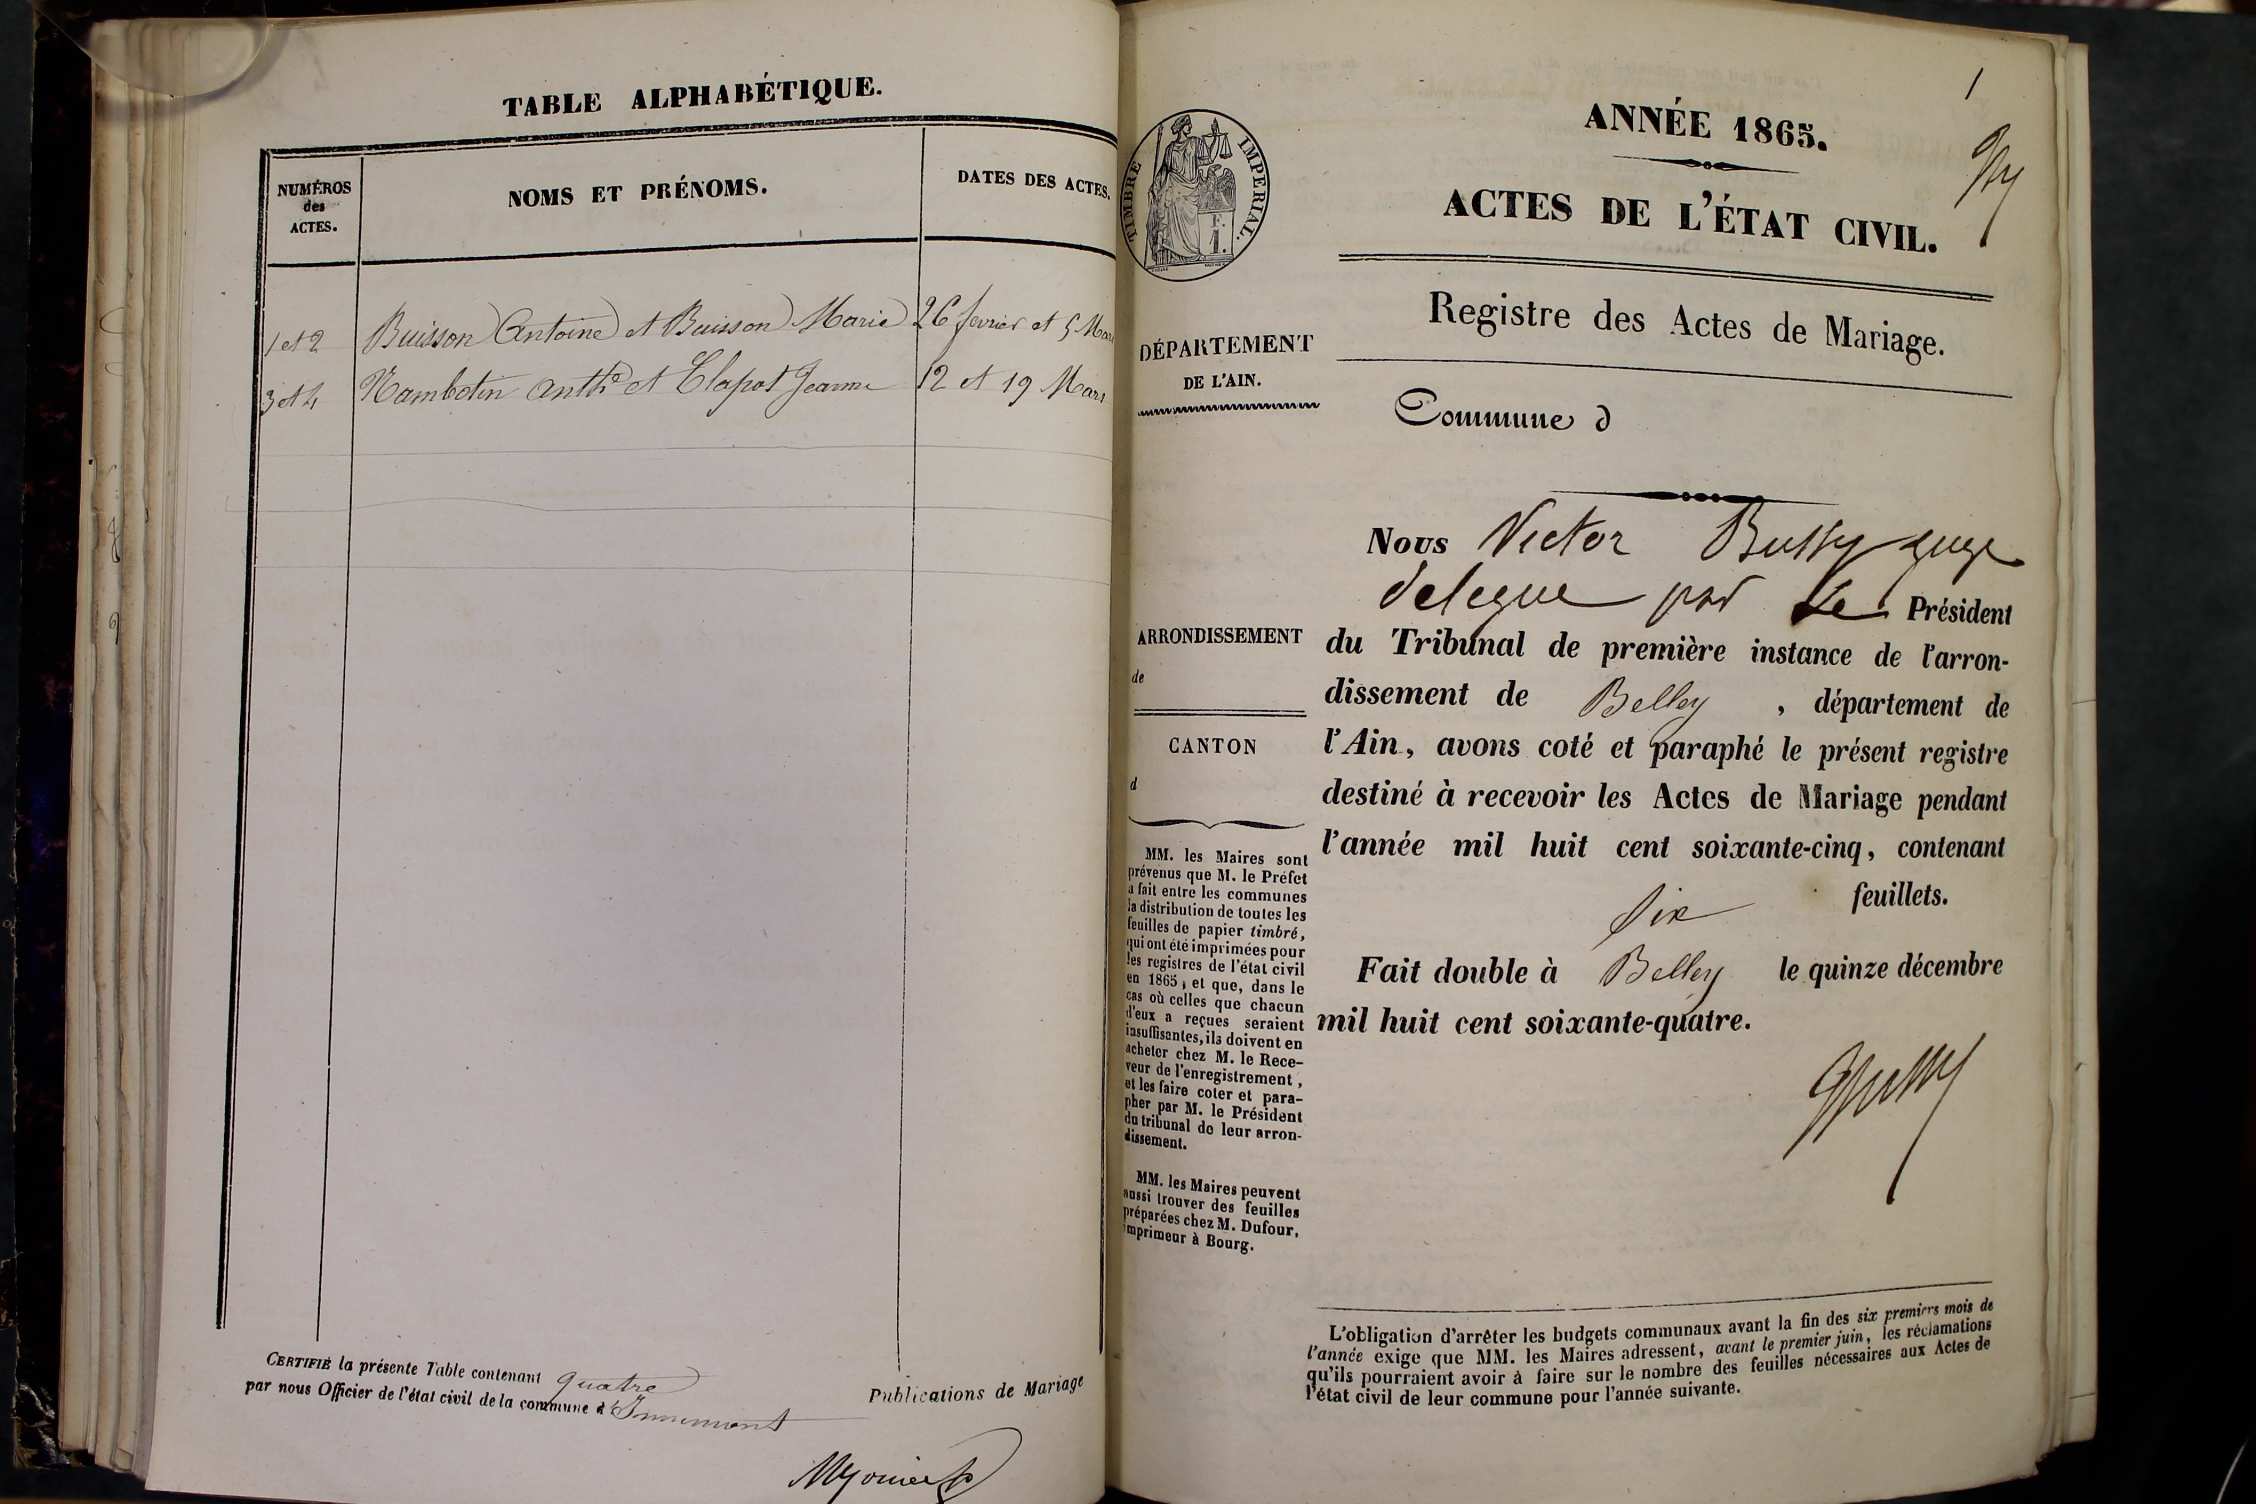 TABLE ALPHABÉTIQUE.
NUMÉROS
des
ACTES.
NOMS ET PRÉNOMS.
DATES DES ACTES.
1 et 2 Buisson Antoine et Buisson Marie 26 fevrier et 5 Mars
3 et 4 Nambotin anth.e et Clapot Jeanne 12 et 19 Mars
CERTIFIÉ la présente Table contenant quatre
Publications de Mariage
par nous Officier de l'état civil de la commune d'Innimont
1
ANNÉE 1865.
ACTES DE L'ÉTAT CIVIL.
TIMBRE IMPERIAL.
1 F.
Registre des Actes de Mariage.
DÉPARTEMENT
DE L'AIN.
Commune d
Nous Victor Bussy juge
delegue par le Président
du Tribunal de première instance de l'arron-
dissement de Belley, département de
l'Ain, avons coté et paraphé le présent registre
destiné à recevoir les Actes de Mariage pendant
l'année mil huit cent soixante-cinq, contenant
six feuillets.
Fait double à Belley le quinze décembre
mil huit cent soixante-quatre.
ARRONDISSEMENT
de
CANTON
d
MM. les Maires sont
prévenus que M. le Préfet
a fait entre les communes
la distribution de toutes les
feuilles de papier timbré,
qui ont été imprimées pour
les registres de l'état civil
en 1865, et que, dans le
cas où celles que chacun
d'eux a reçues seraient
insuffisantes, ils doivent en
acheter chez M. le Rece-
veur de l'enregistrement,
et les faire coter et para-
pher par M. le Président
du tribunal de leur arron-
dissement.
MM. les Maires peuvent
aussi trouver des feuilles
préparées chez M. Dufour,
imprimeur à Bourg.
L'obligation d'arrêter les budgets communaux avant la fin des six premiers mois de
l'année exige que MM. les Maires adressent, avant le premier juin, les réclamations
qu'ils pourraient avoir à faire sur le nombre des feuilles nécessaires aux Actes de
l'état civil de leur commune pour l'année suivante.